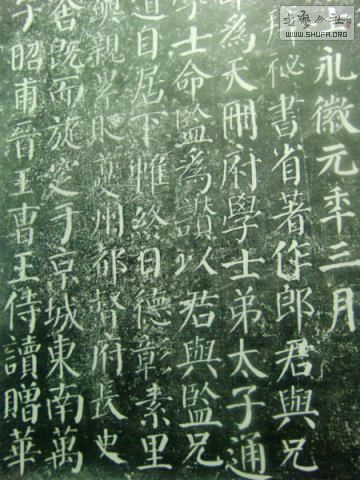 書藝公社
WWW.SHUFA.ORG
永徽元年三月
秘書省著作郎君與兄
為天冊府學士弟太子通
學士命監為讚以君與監兄
道目居下惟終日德彰素里
親以睦夔州都督府長史
舍既而旋定于京城東南萬
子昭甫晉王曹王侍讀贈華